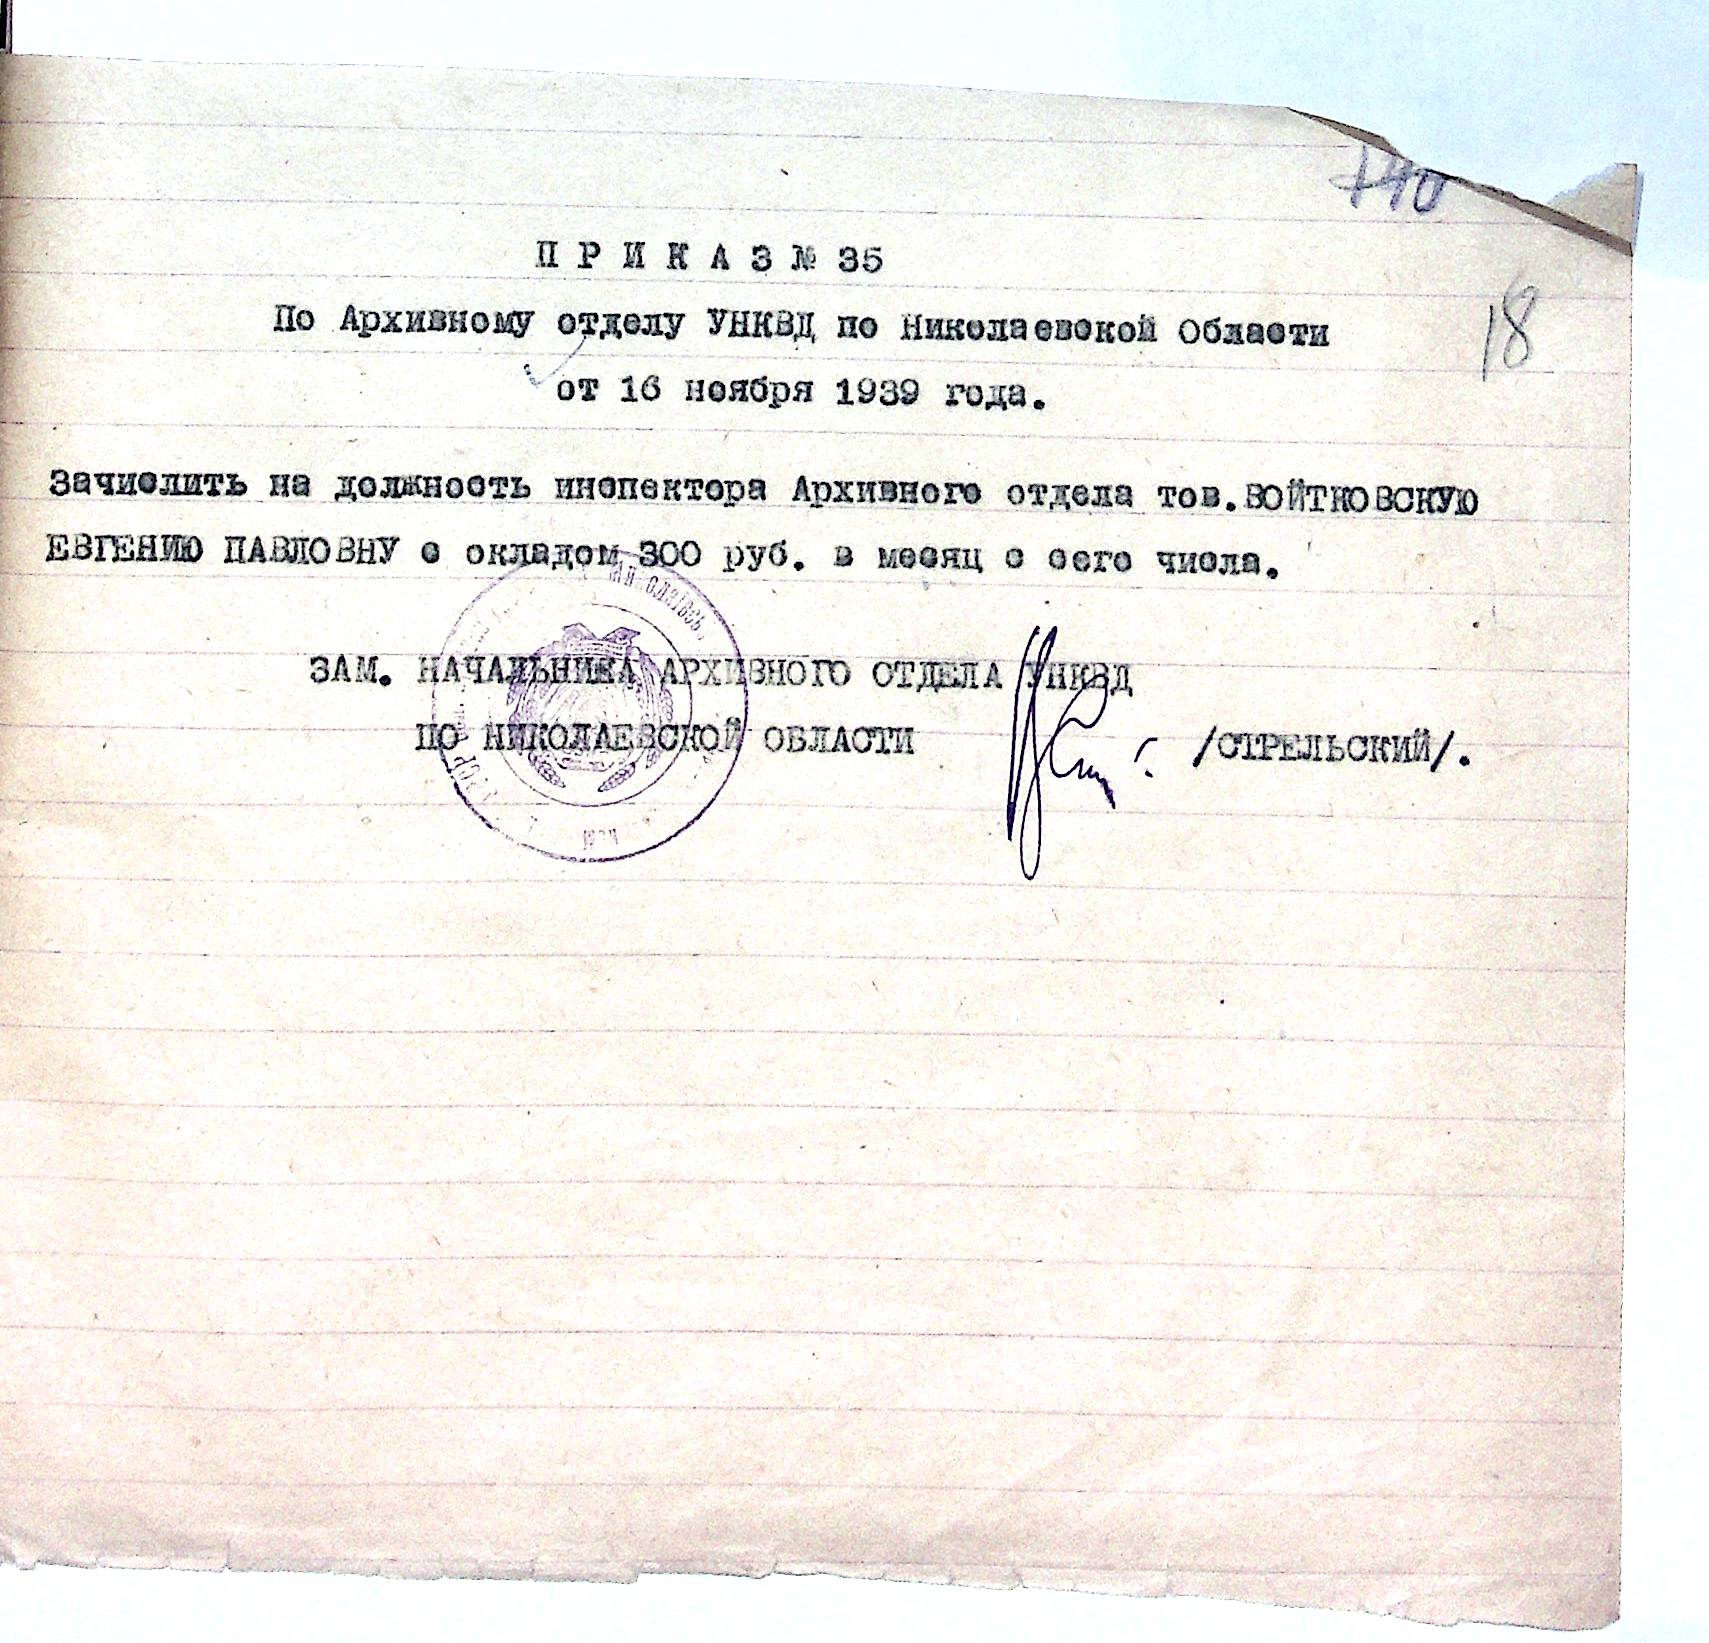 140
П Р И К А З № 35
18
По Архивному отделу УНКВД по Николаевской Области
от 16 ноября 1939 года.
Зачислить на должность инспектора Архивного отдела тов.ВОЙТКОВСКУЮ
ЕВГЕНИЮ ПАВЛОВНУ с окладом 300 руб. в месяц с сего числа.
ЗАМ. НАЧАЛЬНИКА АРХИВНОГО ОТДЕЛА УНКВД
ПО НИКОЛАЕВСКОЙ ОБЛАСТИ /СТРЕЛЬСКИЙ/.